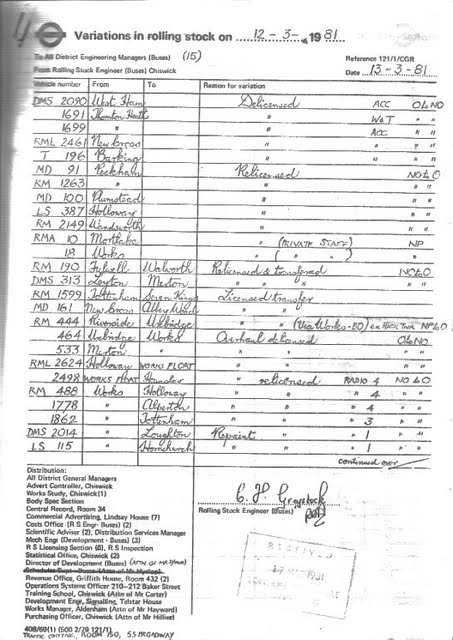 4
Variations in rolling stock on 12 - 3 - 1981
To All District Engineering Managers (Buses) (15)
Reference 121/1/CGR
From Rolling Stock Engineer (Buses) Chiswick
Date 13-3-81
Vehicle number From To Reason for variation
DMS 2090 West Ham Delicensed ACC OLNO
1691 Thornton Heath " W&T " "
1699 " " ACC " "
RML 2461 New Cross " " " "
T 196 Barking " " " "
MD 91 Peckham Relicensed NOLO
RM 1263 " " " "
MD 100 Plumstead " " "
LS 387 Holloway " " "
RM 2149 Wandsworth " " "
RMA 10 Mortlake " (PRIVATE STAFF) NP
18 Works " ( " " ) "
RM 190 Fulwell Walworth Relicensed & transferred NOLO
DMS 313 Leyton Merton " " " "
RM 1599 Tottenham Seven Kings Licensed transfer
MD 161 New Cross Abbey Wood " "
RM 444 Riverside Uxbridge " " (Via Works-EO) NPLO
464 Uxbridge Works Overhaul delicensed OLNO
533 Merton " " " " "
RML 2624 Holloway WORKS FLOAT " " " "
2498 WORKS FLOAT Hounslow " relicensed RADIO 4 NOLO
RM 488 Works Holloway " " " 4 " "
1778 " Alperton " " " 4 " "
1862 " Tottenham " " " 3 " "
DMS 2014 " Loughton Repaint " " 1 " "
LS 115 " Hornchurch " " " 1 " "
continued over
Distribution:
All District General Managers
Advert Controller, Chiswick
Works Study, Chiswick (1)
Body Spec Section
Central Record, Room 34
Commercial Advertising, Lindsay House (7)
Costs Office (R S Engr- Buses) (2)
Scientific Adviser (2), Distribution Services Manager
Mech Engr (Development - Buses) (3)
R S Licensing Section (6), R S Inspection
Statistical Office, Chiswick (2)
Director of Development (Buses)
Schedules Supt - Buses (Attn of Mr Hyslop)
Revenue Office, Griffith House, Room 432 (2)
Operations Systems Officer 210-212 Baker Street
Training School, Chiswick (Attn of Mr Carter)
Development Engr, Signalling, Telstar House
Works Manager, Aldenham (Attn of Mr Hayward)
Purchasing Officer, Chiswick (Attn of Mr Hillier)
C. P. Graystock
Rolling Stock Engineer (Buses)
RECEIVED
1981
408/69(1) (500 2/79 121/1)
TRAFFIC CONTROL, ROOM 130, 55 BROADWAY